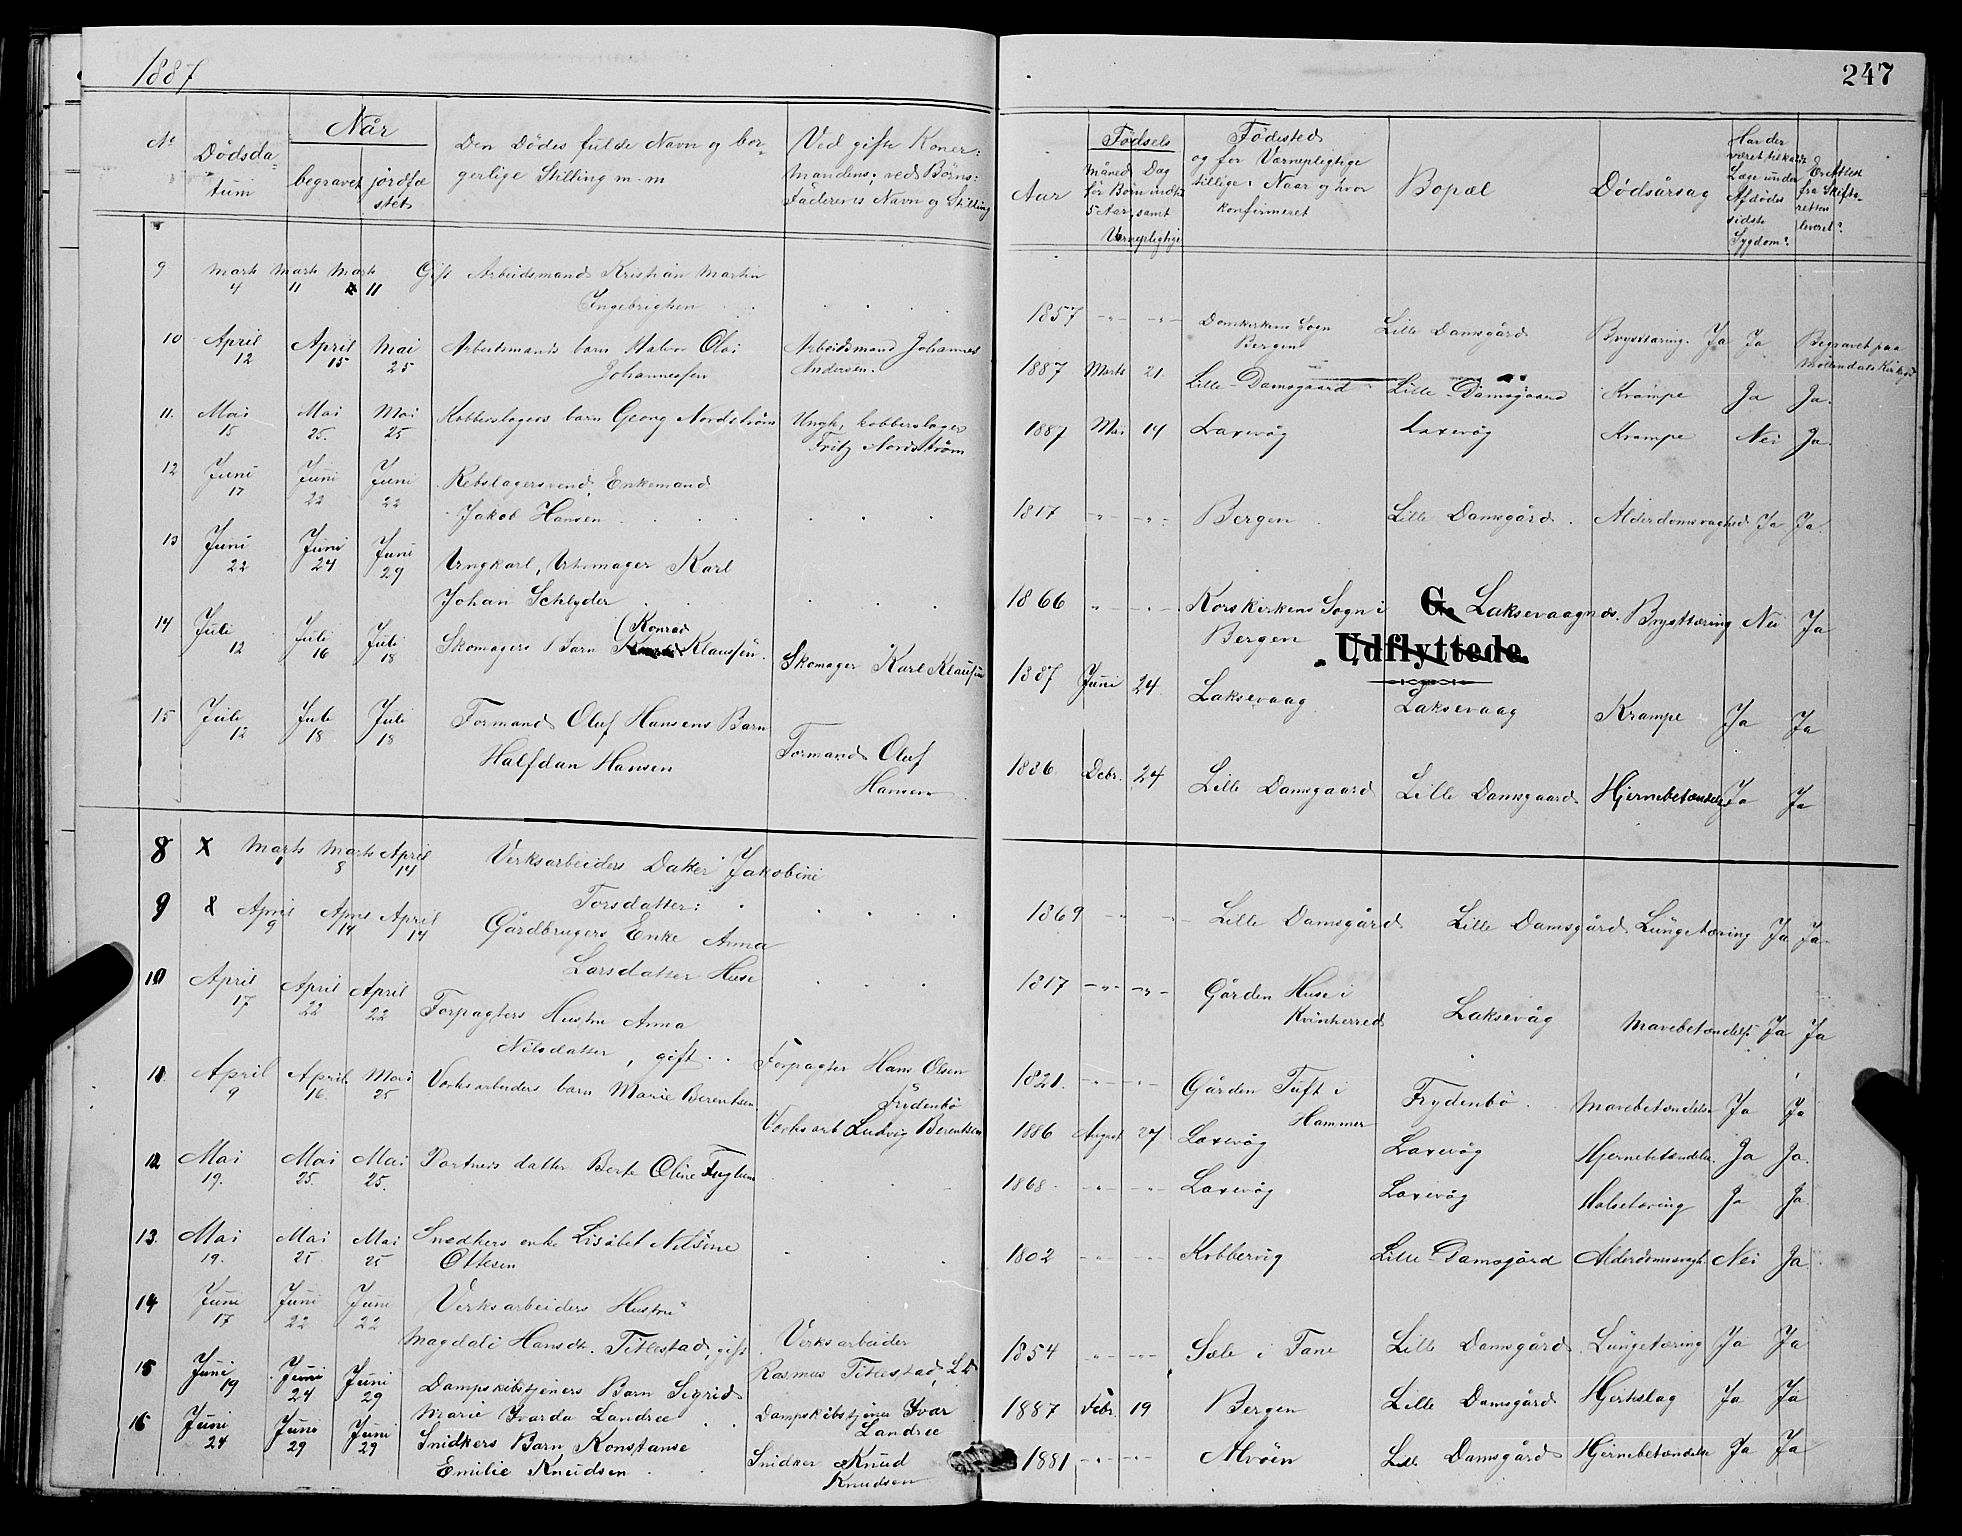 1887
247
No
Dødsda-
tum
Når
begravet
jordfæ
stet
Den Dödes fulde Navn og bor-
gerlige Stilling m. m
Ved gifte Koner:
Mandens; ved Börns:
Faderens Navn og Stilling
Aar
Fødsels
Måned Dag
for Börn indtil
5 Aar, samt
Værnepligtige
Födested
og for Værnepligtige
tillige: Naar og hvor
konfirmeret
Bopæl
Dödsårsag
Har der
været tilkaldt
Læge under
Afdödes
sidste
Sygdom?
Er Attest
fra Skifte-
retten
leveret?
9 Marts 4 Marts 11 Marts 11 Gift Arbeidsmand Kristian Martin
Ingebrigtsen
1857 Domkirkens Sogn Bergen Lille Damsgård Brysttæring. Ja Ja Begravet paa Möllendals Kirkegd
10 April 12 April 15 Mai 25 Arbeidsmands barn Halvor Olai
Johannessen
Arbeidsmand Johannes
Andersen.
1887 Marts 21 Lille-Damsgaard Lille-Damsgaard Krampe Ja Ja.
11. Mai 15 Mai 25. Mai 25 Kobberslagers barn Georg Nordström
Ungk, kobberslager
Fritz Nordström
1887 Mai 14 Laxevåg Laxevåg Krampe Nei Ja
12 Juni 17 Juni 22 Juni 22 Rebslagersvend, Enkemand
Jakob Hansen
1817 Bergen Lille Damsgård. Alderdomsvaghed Ja Ja
13 Juni 22 Juni 24 Juni 29 Ungkarl, Urtemager Karl
Johan Schlyder
1866 Korskirkens Sogn i
Bergen
G. Laksevaagnæs. Brysttæring Nei Ja
Udflyttede.
14 Juli 12 Juli 16 Juli 18 Skomagers Barn (Konrad Klausen.
Skomager Karl Klausen
1887 Juni 24 Laksevaag Laksevaag Krampe Ja Ja
15 Juli 12 Juli 18 Juli 18 Formand Oluf Hansens Barn
Halfdan Hansen
Formand Oluf
Hansen
1886 Debr. 24 Lille Damsgaard Lille Damsgaard Hjernebetændelse Ja Ja
8 x Marts 1 Marts 8 April 14 Verksarbeiders Datter Jakobine
Torsdatter:
1869 Lille Damsgård Lille Damsgård Lungetæring Ja Ja
9 x April 9 April 14 April 14 Gårdbrugers Enke Anna
Larsdatter Huse
1817 Gården Huse i
Kvinherred
Laksevåg Mavebetændelse Ja Ja
10 April 17 April 22 April 22 Forpagters Hustru Anna
Nilsdatter, gift.
Forpagter Hans Olsen
Frydenbö
1821. Gården Tuft i
Hammer
Frydenbö. Mavebetændelse Ja Ja
11. April 9 April 16. Mai 25 Værksarbeiders barn Marie Berentsen
Værksarb Ludvig Berentsen
1886 August 27 Laxevåg Laxevåg Hjernebetændelse. Ja Ja.
12 Mai 19. Mai 25. Mai 25. Portners datter Berte Oline Fuglum
1868 Laxevåg Laxevåg Halsetæring Ja Ja.
13. Mai 19. Mai 25. Mai 25 Snedkers enke Lisabet Nilsine
Ottesen
1802 Kobbervig Lille-Damsgård Alderdomssvagh. Nei Ja
14 Juni 17 Juni 22 Juni 22 Verksarbeiders Hustru
Magdali Hansdt. Titlestad, gift
Verksarbeider
Rasmus Titlestad, L D
1854 Sæle i Fane Lille Damsgård Lungetæring Ja Ja
15 Juni 19 Juni 24 Juni 29 Dampskibstjeners Barn Sigrid
Marie Ivarda Landree
Dampskibstjener Ivar
Landree
1887 Febr. 19 Bergen Lille Damsgård Hjerteslag Ja Ja
16 Juni 24 Juni 29 Juni 29 Snidkers Barn Konstanse
Emilie Knudsen
Snidker Knud
Knudsen
1881 Alvöen Lille Damsgård Hjernebetændelse Ja Ja